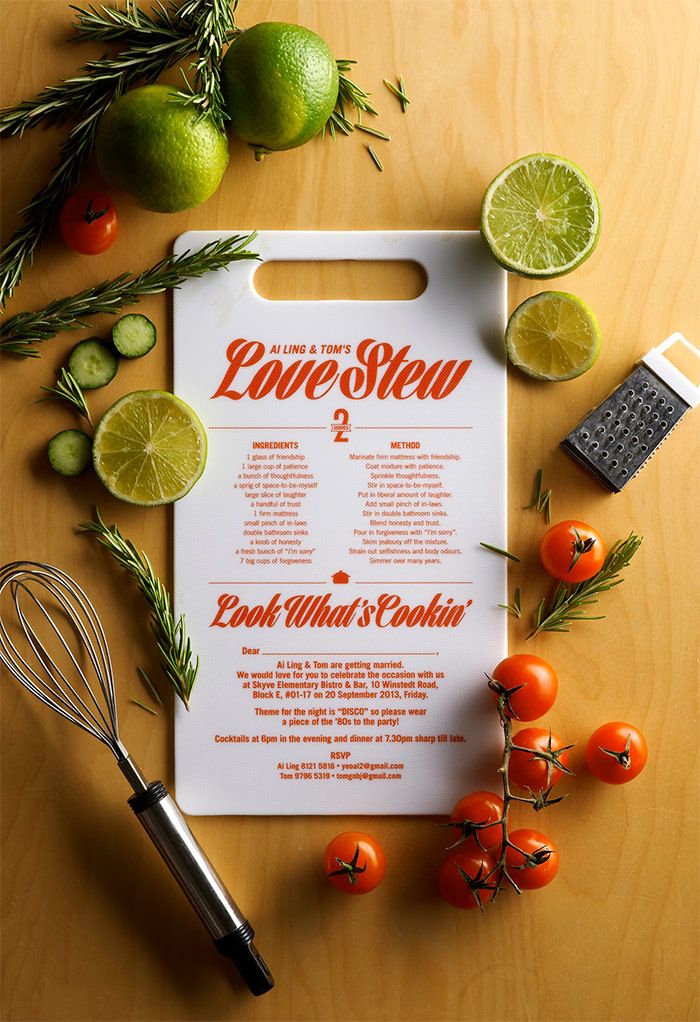 AI LING & TOM'S
Love Stew
SERVES
2
INGREDIENTS
1 glass of friendship
1 large cup of patience
a bunch of thoughtfulness
a sprig of space-to-be-myself
large slice of laughter
a handful of trust
1 firm mattress
small pinch of in-laws
double bathroom sinks
a knob of honesty
a fresh bunch of "I'm sorry"
7 big cups of forgiveness
METHOD
Marinate firm mattress with friendship.
Coat mixture with patience.
Sprinkle thoughtfulness.
Stir in space-to-be-myself.
Put in liberal amount of laughter.
Add small pinch of in-laws.
Stir in double bathroom sinks.
Blend honesty and trust.
Pour in forgiveness with "I'm sorry".
Skim jealousy off the mixture.
Strain out selfishness and body odours.
Simmer over many years.
Look What's Cookin'
Dear ,
Ai Ling & Tom are getting married.
We would love for you to celebrate the occasion with us
at Skyve Elementary Bistro & Bar, 10 Winstedt Road,
Block E, #01-17 on 20 September 2013, Friday.
Theme for the night is "DISCO" so please wear
a piece of the '80s to the party!
Cocktails at 6pm in the evening and dinner at 7.30pm sharp till late.
RSVP
Ai Ling 8121 5816 • yeoal2@gmail.com
Tom 9796 5319 • tomgohj@gmail.com